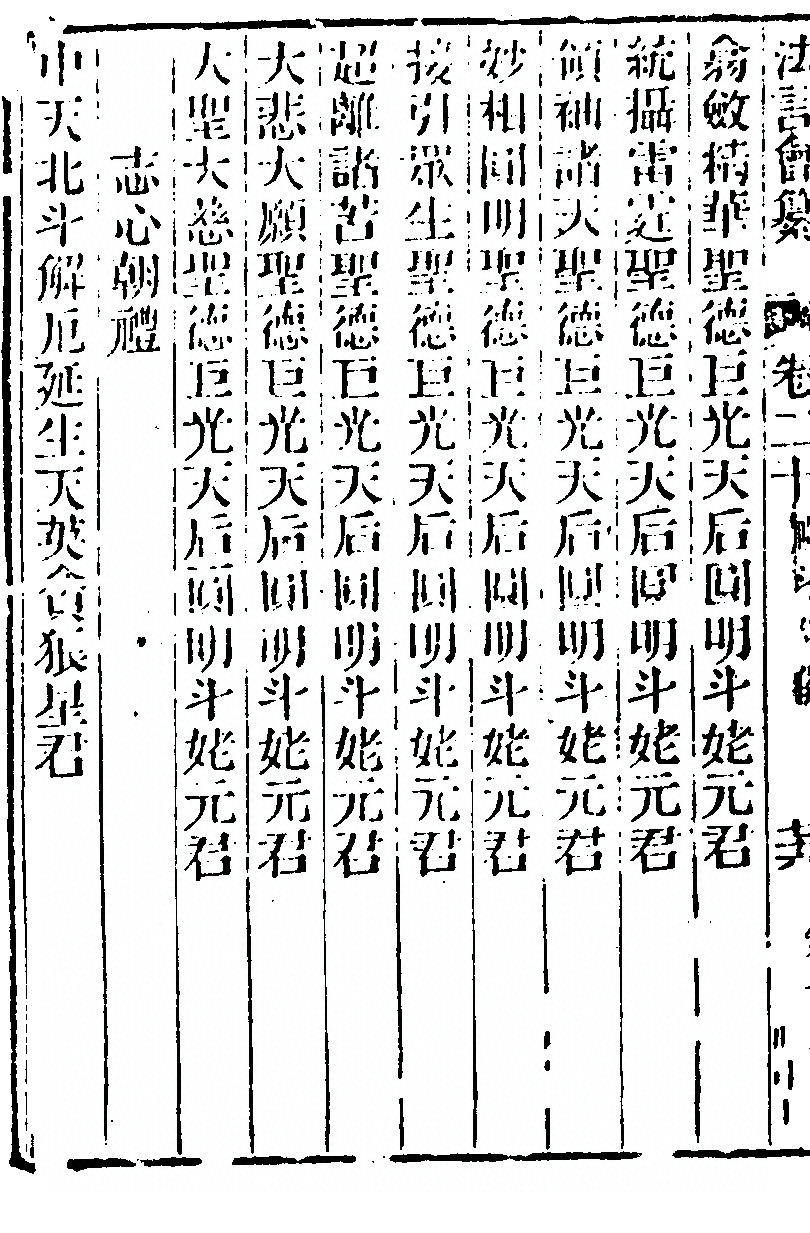 法言會纂 卷二十
翕斂精華聖德巨光天后圓明斗姥元君
統攝雷霆聖德巨光天后圓明斗姥元君
領袖諸天聖德巨光天后圓明斗姥元君
妙相圓明聖德巨光天后圓明斗姥元君
接引眾生聖德巨光天后圓明斗姥元君
超離諸苦聖德巨光天后圓明斗姥元君
大悲大願聖德巨光天后圓明斗姥元君
大聖大慈聖德巨光天后圓明斗姥元君
志心朝禮
中天北斗解厄延生天英貪狼星君